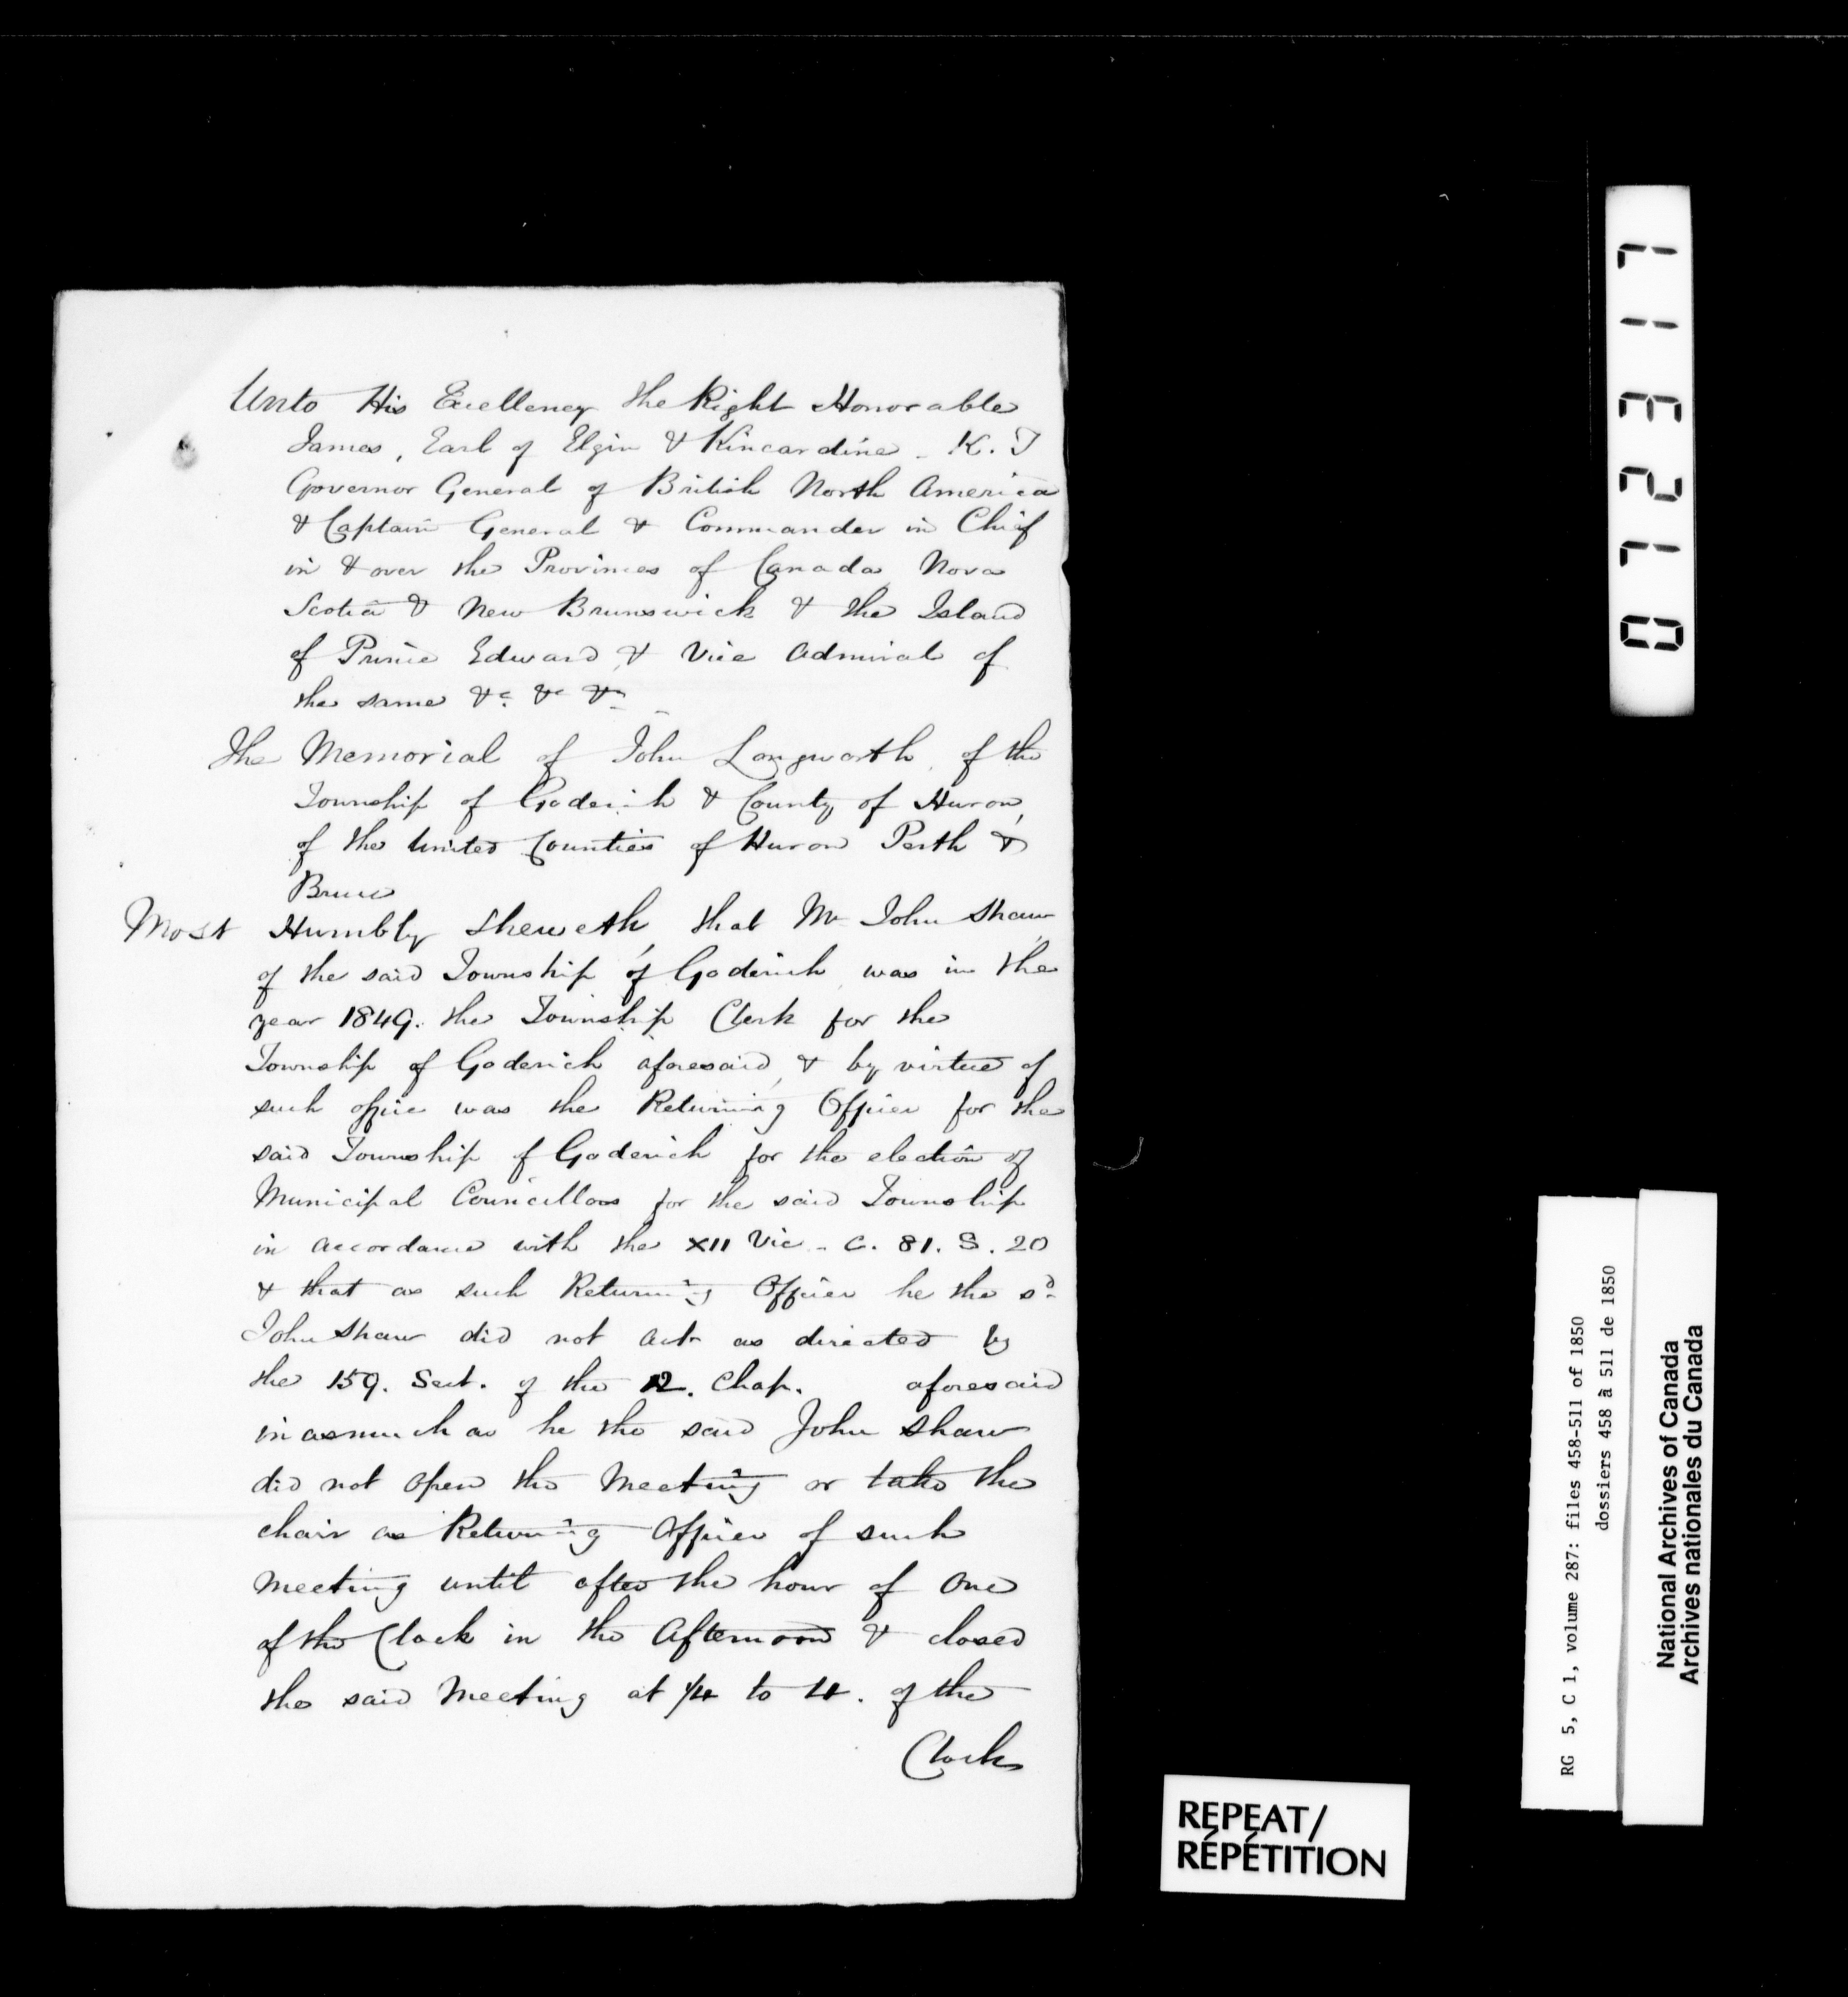 Unto His Excellency the Right Honorable
James, Earl of Elgin & Kincardine - K. T
Governor General of British North America
& Captain General & Commander in Chief
in & over the Provinces of Canada Nova
Scotia & New Brunswick & the Island
of Prince Edward & Vice Admiral of
the same &c. &c &c
The Memorial of John Longworth, of the
Township of Goderich & County of Huron,
of the United Counties of Huron Perth &
Bruce
Most Humbly Sheweth, that Mr John Shaw,
of the said Township of Goderich, was in the
year 1849. the Township Clerk for the
Township of Goderich aforesaid, & by virtue of
such office was the Returning Officer for the
said Township of Goderich for the election of
Municipal Councillors for the said Township
in accordance with the XII Vic - C. 81. S. 20
& that as such Returning Officer he the sd
John Shaw did not act as directed by
the 159. Sect. of the 12. Chap. aforesaid
inasmuch as he the said John Shaw
did not open the Meeting or take the
chair as Returning Officer of such
Meeting until after the hour of One
of the Clock in the Afternoon & closed
the said Meeting at 1/4 to 4. of the
Clock
REPEAT/
RÉPÉTITION
071231 7
RG 5, C 1, volume 287: files 458-511 of 1850
dossiers 458 à 511 de 1850
National Archives of Canada
Archives nationales du Canada